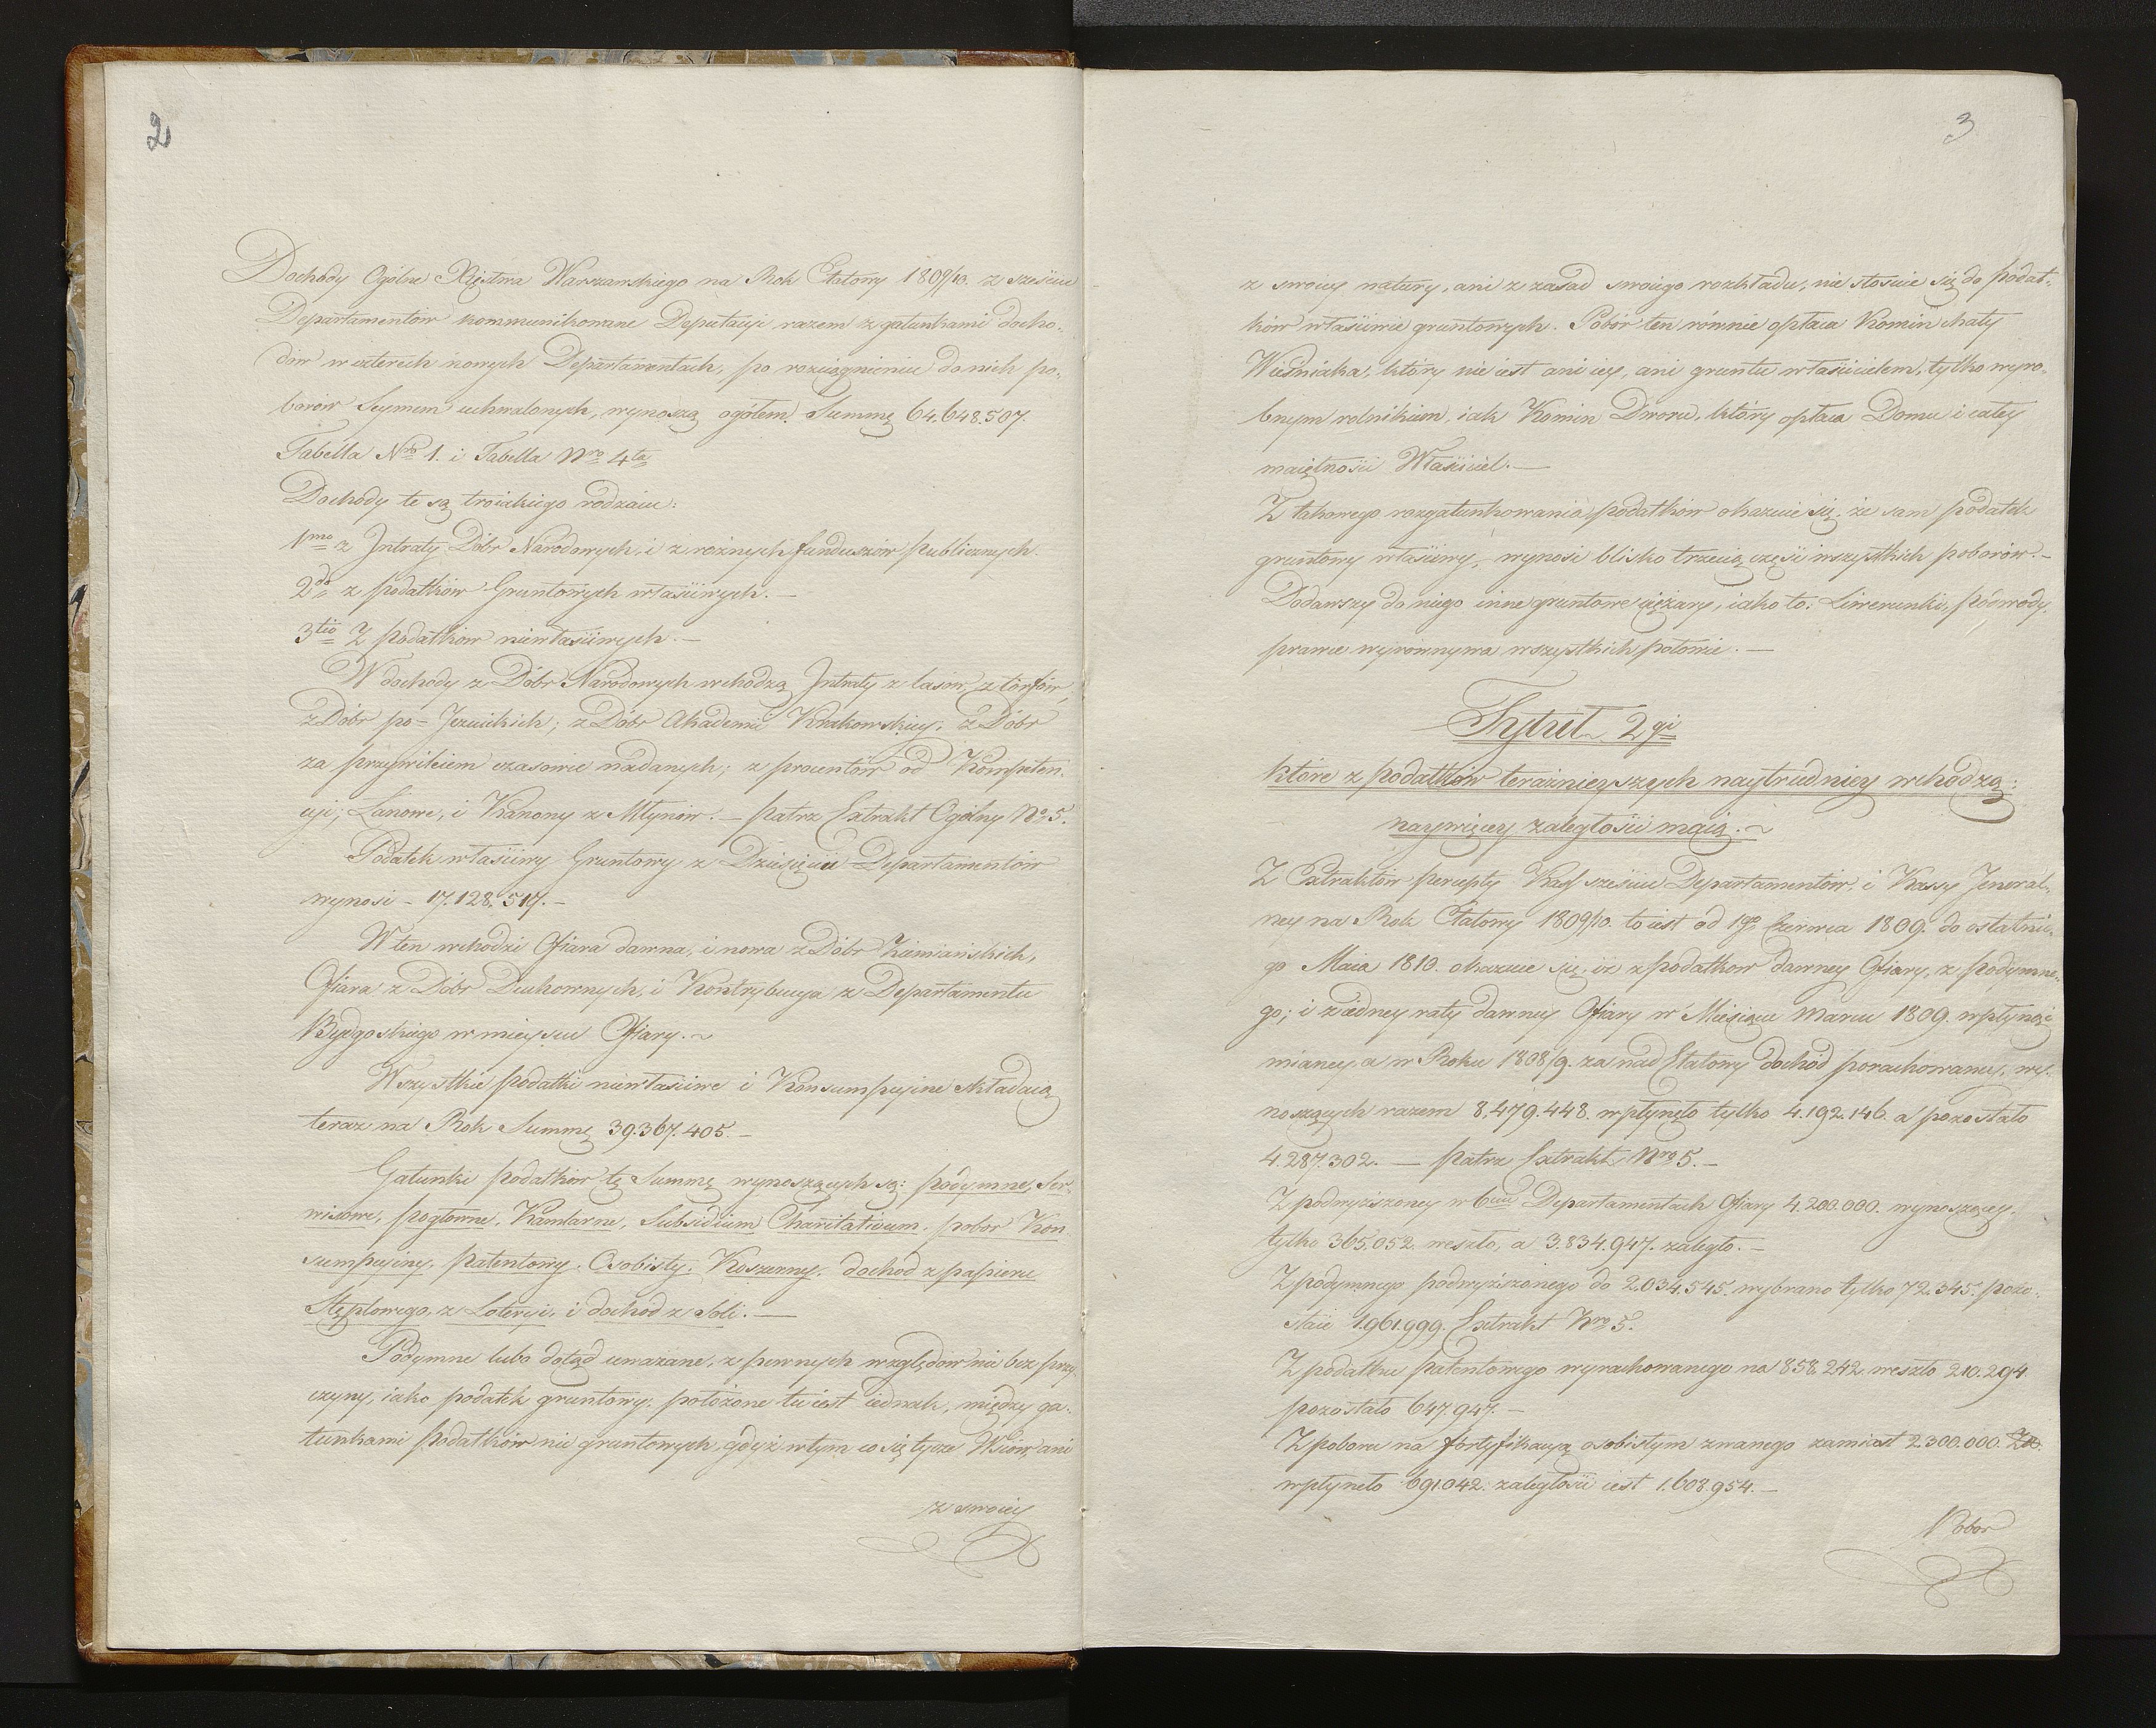 2
Dochody Ogólne Xięstwa Warszawskiego na Rok Etatowy 1809/10. z sześciu
Departamentów kommunikowane Deputacyi razem z gatunkami docho-
dów w czterech nowych Departamentach, po rozciągnieniu do nich po-
borów Seymem uchwalonych, wynoszą ogółem Summę 64.648.507.
Tabella Nro 1. i Tabella Nro 4ta
Dochody te są troiakiego rodzaiu:
1mo z Jntraty Dóbr Narodowych, i z rożnych funduszów publicznych.
2do z podatków Gruntowych właściwych. —
3tio Z podatków niewłaściwych. —
W dochody z Dóbr Narodowych wchodzą Jntraty z lasów, z torfów,
z Dóbr po-Jezuickich; z Dóbr Akademii Krakowskiey; z Dóbr
za przywileiem czasowie nadanych; z procentów od Kompeten-
cyi; Łanowe, i Kanony z Młynów. — patrz Extrakt Ogólny No 5.
Podatek właściwy Gruntowy z Dziesięciu Departamentów
wynosi - 17.128.517. —
W ten wchodzi Ofiara dawna, i nowa z Dóbr Ziemiańskich,
Ofiara z Dóbr Duchownych, i Kontrybucya z Departamentu
Bydgoskiego w mieyscu Ofiary. ~
Wszystkie podatki niewłaściwe i Konsumpcyine składaią
teraz na Rok Summę 39.367.405. —
Gatunki podatków tę Summę wynoszących są: podymne, Ser-
wisowe, pogłowne, Kanlarne, Subsidium Charitativum, pobor Kon-
sumpcyiny, patentowy, Osobisty, Koszerny, dochod z papieru
Stęplowego, z Loteryi, i dochod z Soli. —
Podymne lubo dotąd uważane, z pewnych względów nie bez przy-
czyny, iako podatek gruntowy, położone tu iest iednak, między ga-
tunkami podatków nie gruntowych, gdyż w tym co się tycze Wsiów, ani
z swoiey
3
z swoiey natury, ani z zasad swoiego rozkładu, nie stosuie się do podat-
ków właściwie gruntowych. Pobór ten równie opłaca Komin chaty
Wieśniaka, który nie iest ani iey, ani gruntu właścicielem, tylko wyro-
bnym rolnikiem, iak Komin Dworu, który opłaca Domu i całey
maiętności Właściciel. —
Z takowego rozgatunkowania podatków okazuie się, że sam podatek
gruntowy właściwy, wynosi blisko trzecią część wszystkich poborów. —
Dodawszy do niego inne gruntowe ciężary, iako to: Liwerunki, podwody,
prawie wyrównywa wszystkich połowie. —
Tytuł 2gi
które z podatków teraźnieyszych naytrudniey wchodzą:
naywięcey zaległości maią. ~
Z Extraktów percepty Kass sześciu Departamentów, i Kassy Jeneral-
ney na Rok Etatowy 1809/10. to iest od 1go Czerwca 1809. do ostatnie-
go Maia 1810. okazuie się, iż z podatkow dawney Ofiary, z podymne-
go; i z iedney raty dawney Ofiary w Miesiącu Marcu 1809. wpłynąć
mianey, a w Roku 1808/9. za nad Etatowy dochód porachowaney, wy-
noszących razem 8.479.448. wpłynęło tylko 4.192.146. a pozostało
4.287.302. — patrz Extrakt Nro 5. —
Z podwyższoney w 6ciu Departamentach Ofiary 4.200.000. wynoszącey,
tylko 365.052. weszło, a 3.834.947. zaległo. —
Z podymnego podwyższonego do 2.034.545. wybrano tylko 72.345. pozo-
staie 1.961.999. Extrakt Nro 5.
Z podatku patentowego wyrachowanego na 858.242 weszło 210.294
pozostało 647.947. —
Z poboru na fortyfikacyą osobistym zwanego zamiast 2.300.000. Zło.
wpłyneło 691.042. zaległości iest 1.608.954. —
Pobor